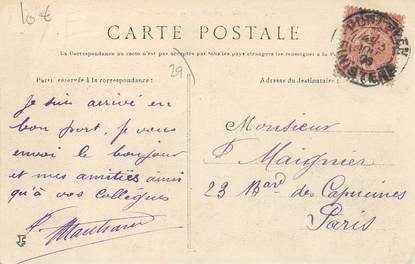 10 €
CARTE POSTALE
La Correspondance au recto n'est pas acceptée par tous les pays étrangers (se renseigner à la Poste)
29
Partie réservée à la correspondance :
Adresse du destinataire :
Je suis arrivé en
bon port, je vous
envoi le bonjour
et mes amitiés ainsi
qu'à vos collègues
Monsieur
P. Maignier
23 Bard des Capucines
Paris
FINISTERE